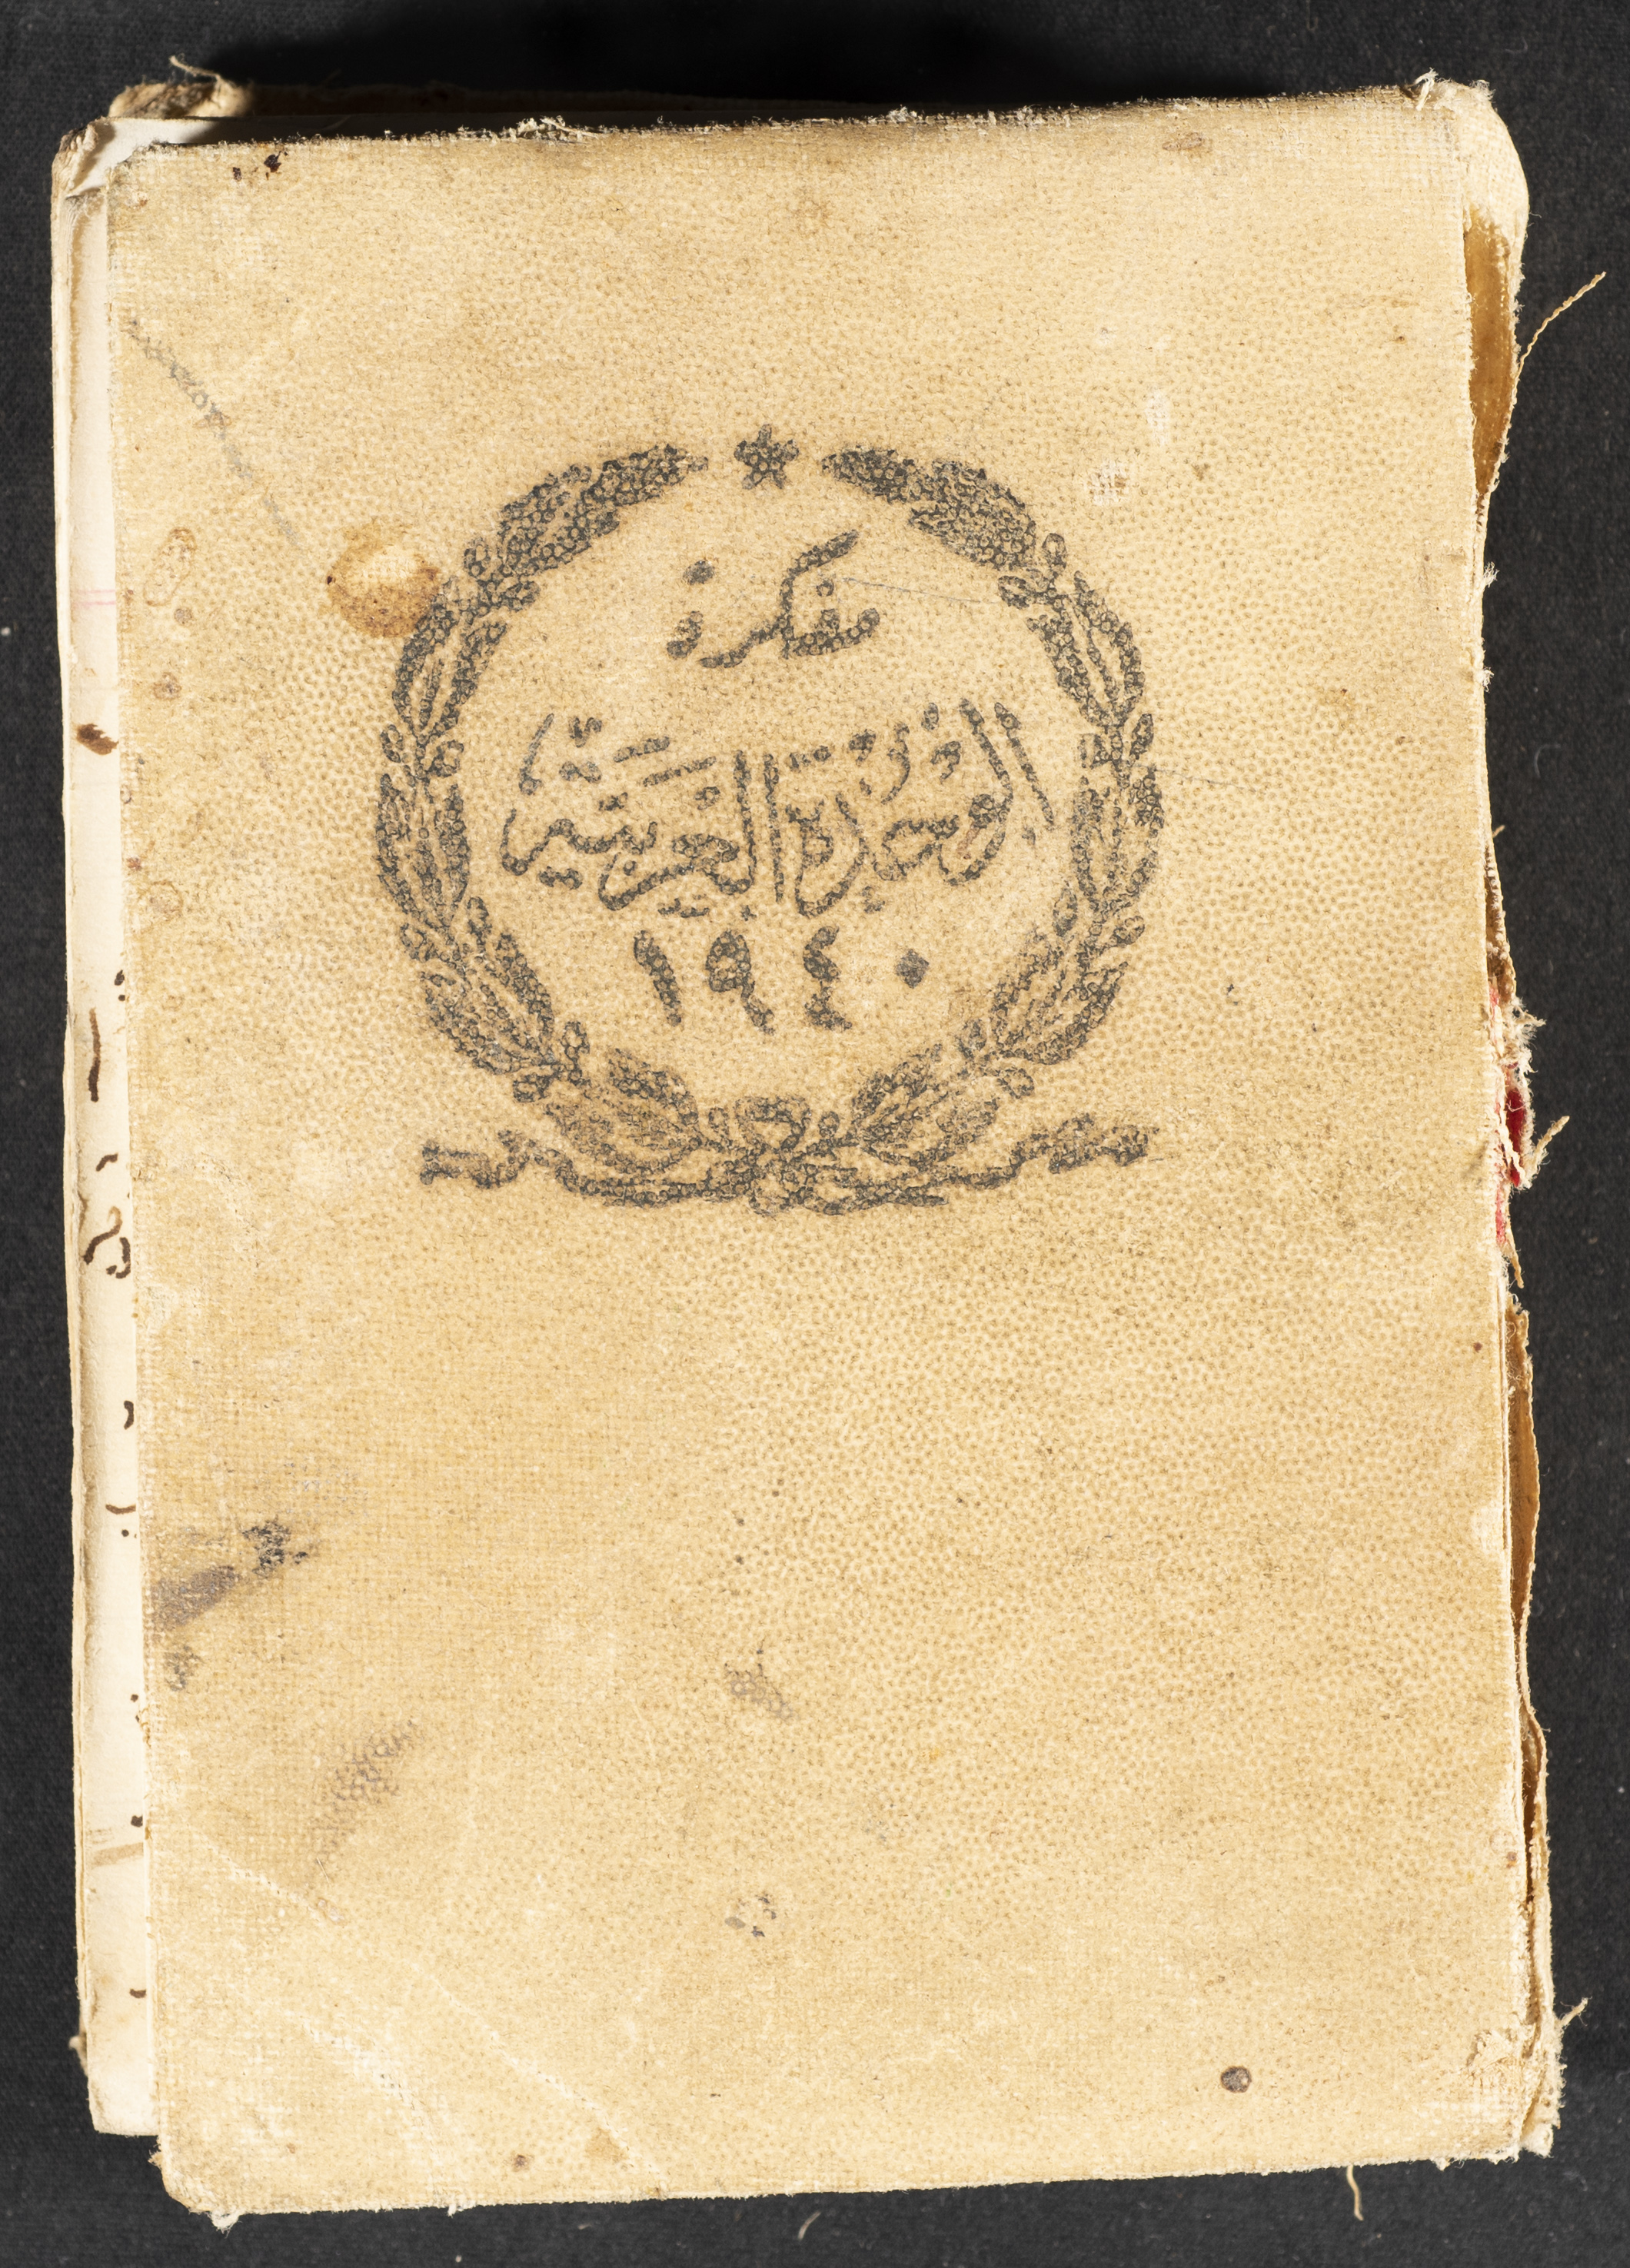 مفكرة
الوحدة العربية
١٩٤٠